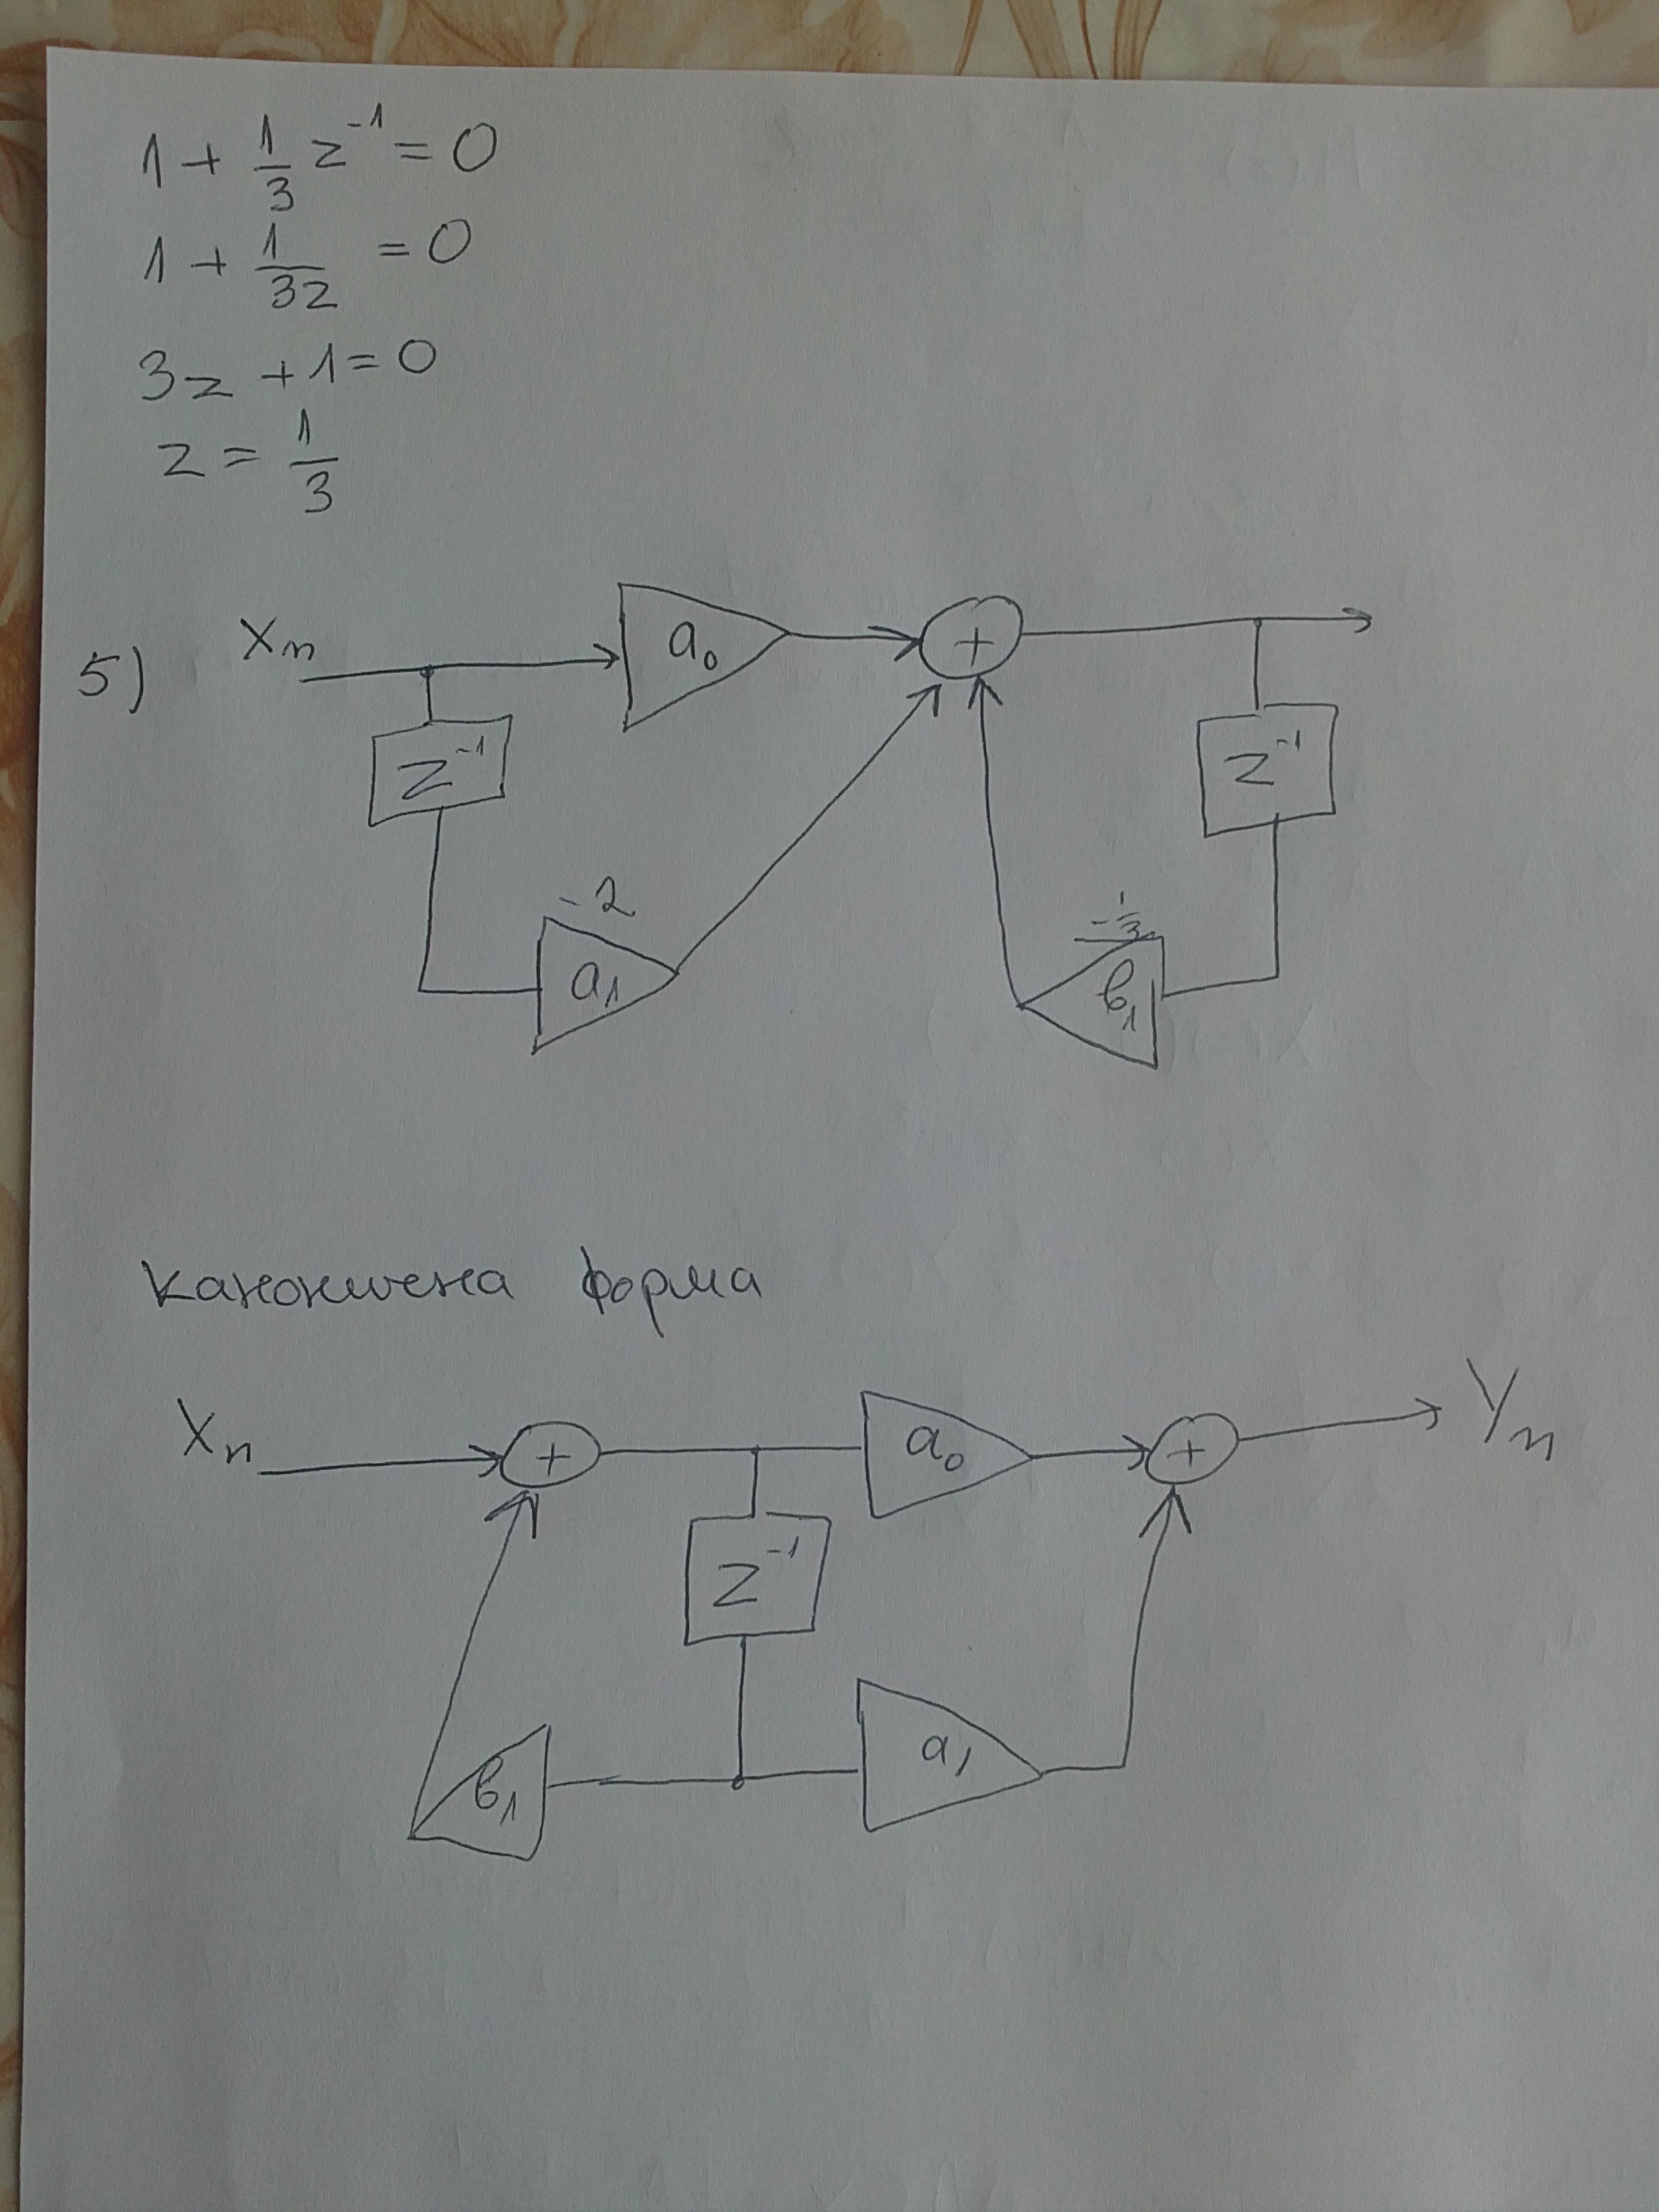 1 + 1/3 z⁻¹ = 0
1 + 1/3z = 0
3z + 1 = 0
z = 1/3
5) Xn a₀ +
z⁻¹ z⁻¹
-2 -1/3
a₁ в₁
Канонична форма
Xn + a₀ + Yn
z⁻¹
в₁ a₁